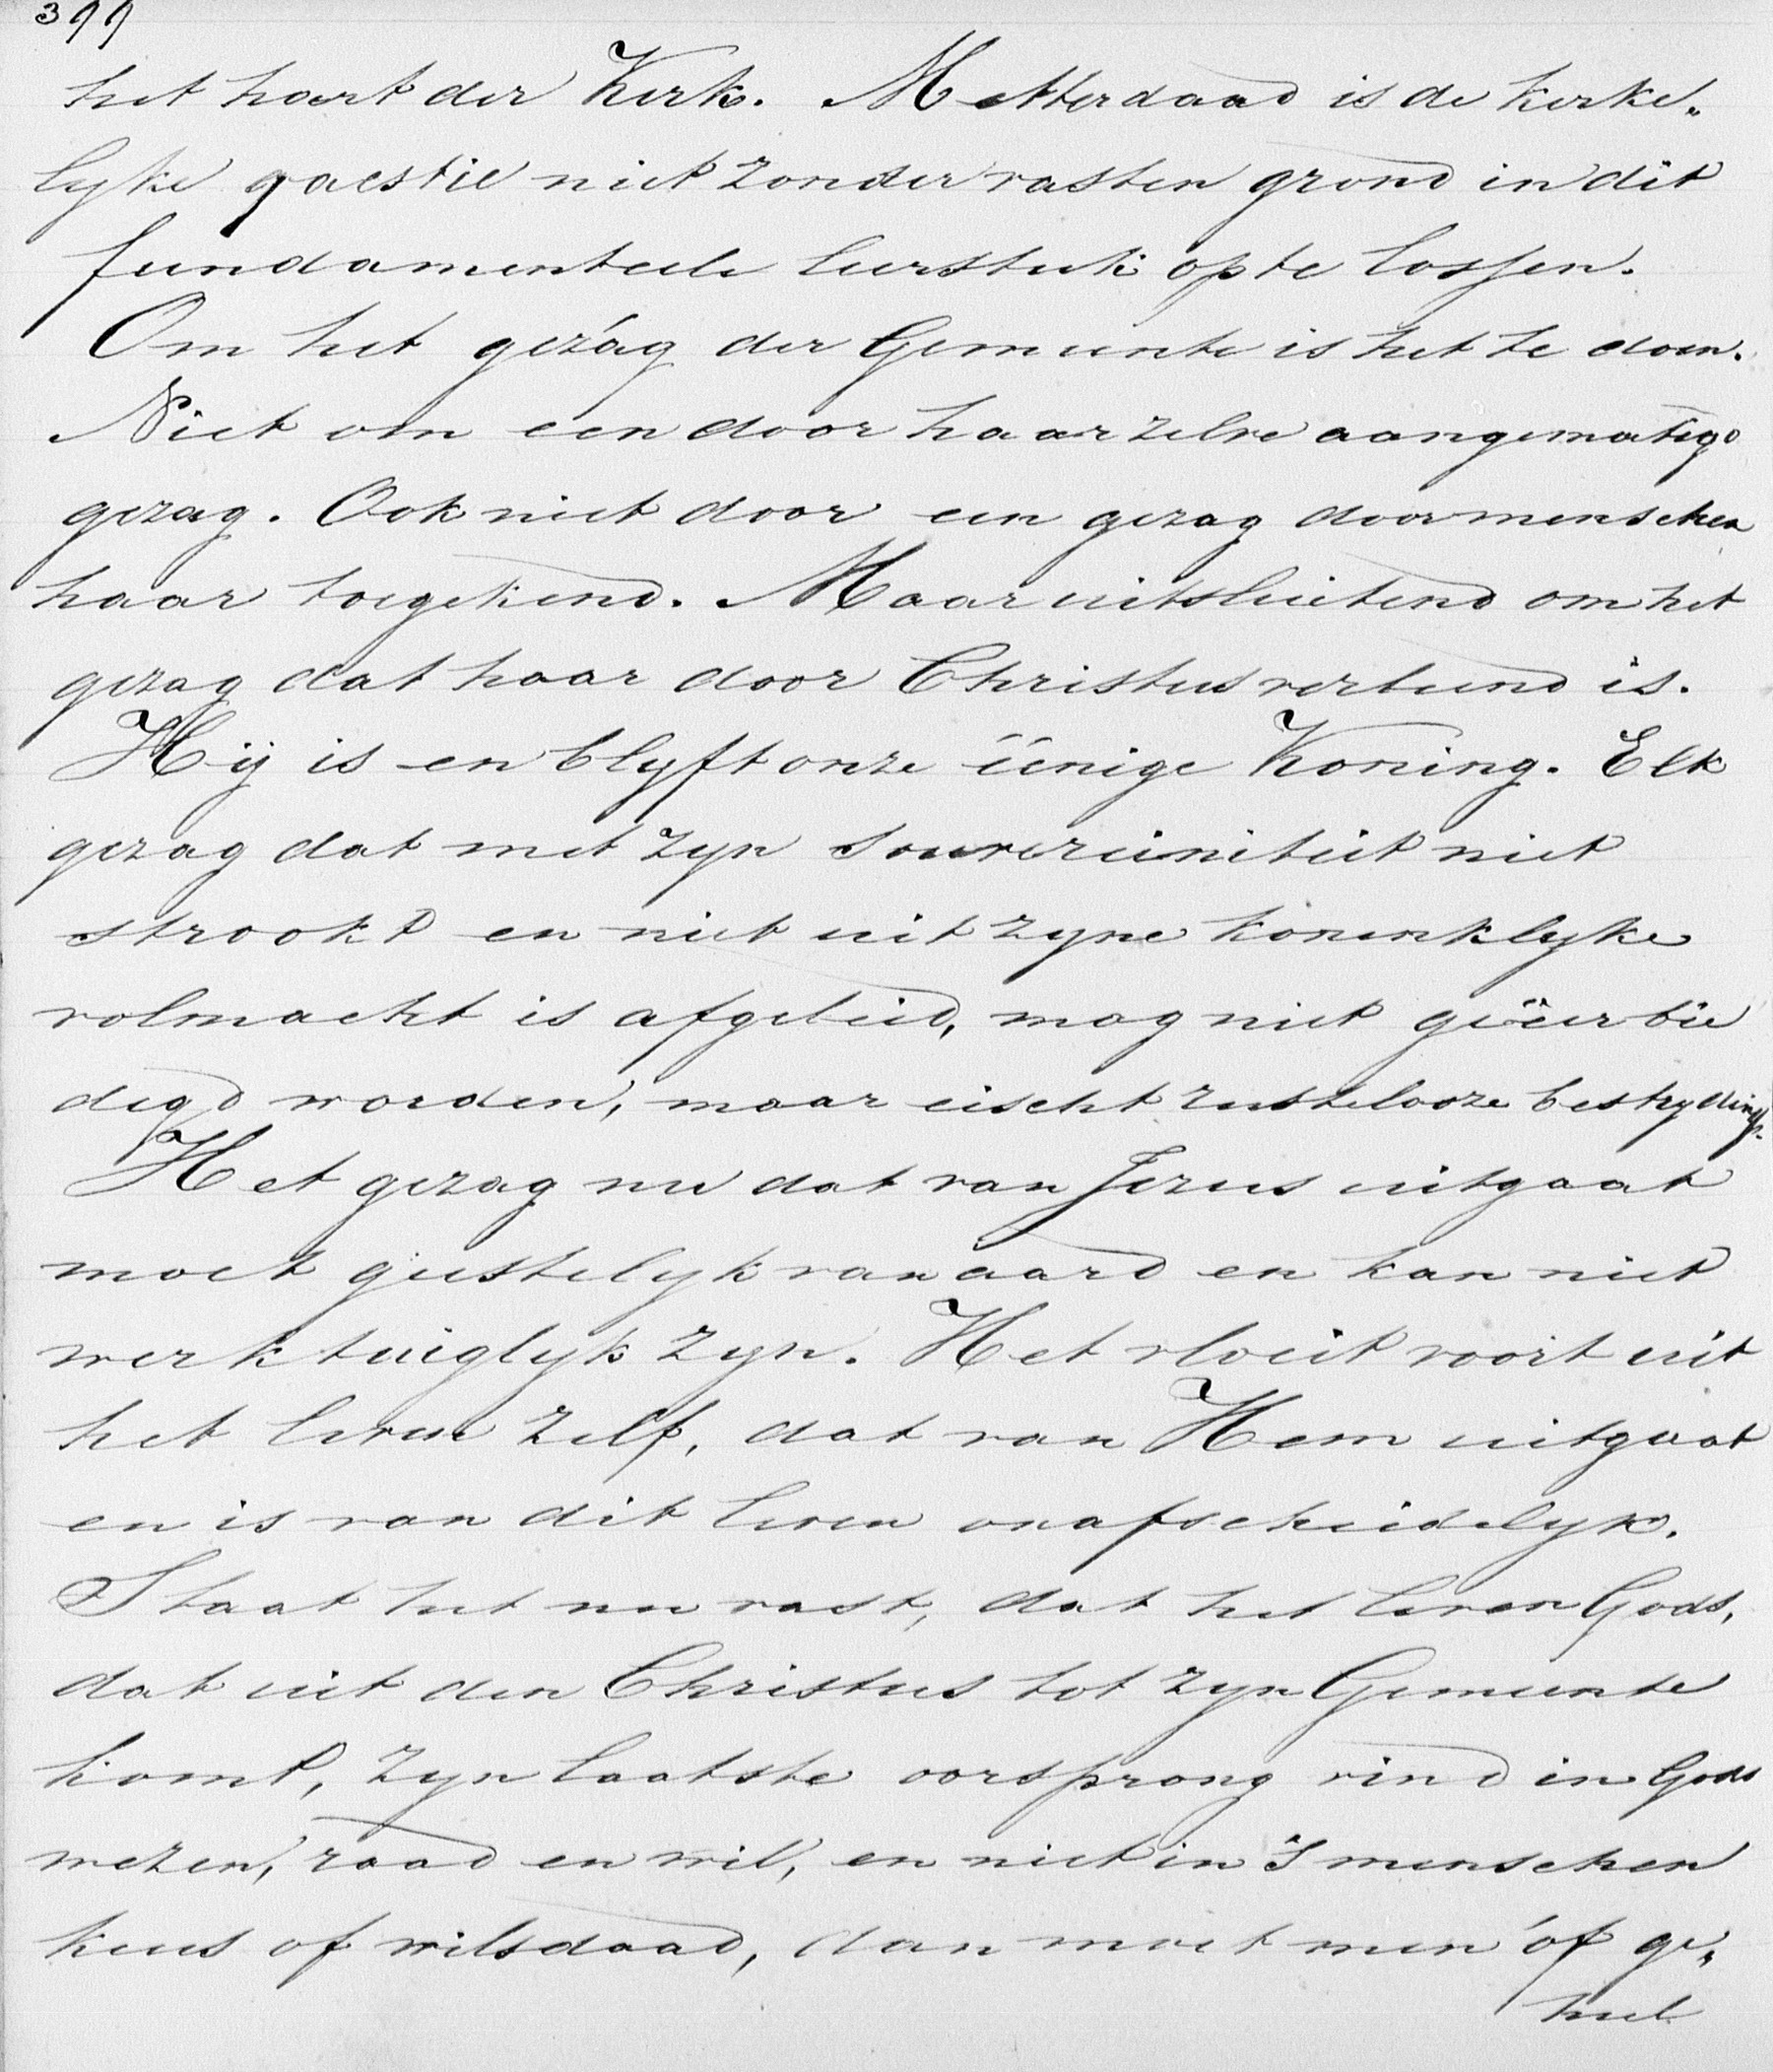 399
het hart der Kerk. Metterdaad is de kerke„
lyke qaestie niet zonder vasten grond in dit
fundamenteele leerstuk op te lossen.
Om het gezág der Gemeente is het te doen.
Niet om een door haar zelve aangematigd
gezag. Ook niet door een gezag door menschen
haar toegekend. Maar uitsluitend om het
gezag dat haar door Christus verleend is.
Hij is en blyft onze éénige Koning. Elk
gezag dat met zyn souvereiniteit niet
strookt en niet uit zyne koninklyke
volmacht is afgeleid, mag niet geëerbie
digd worden, maar eischt rustelooze bestryding.
Het gezag nu dat van Jezus uitgaat
moet geestelyk van aard en kan niet
werktuiglyk zyn. Het vloeit voort uit
het leven zelf, dat van Hem uitgaat
en is van dit leven onafscheidelyk.
Staat het nu vast, dat het leven Gods,
dat uit den Christus tot zyn Gemeente
komt, zyn laatste oorsprong vind in Gods
wezen, raad en wil, en niet in 's menschen
keus of wilsdaad, dan moet men óf ge„
heel